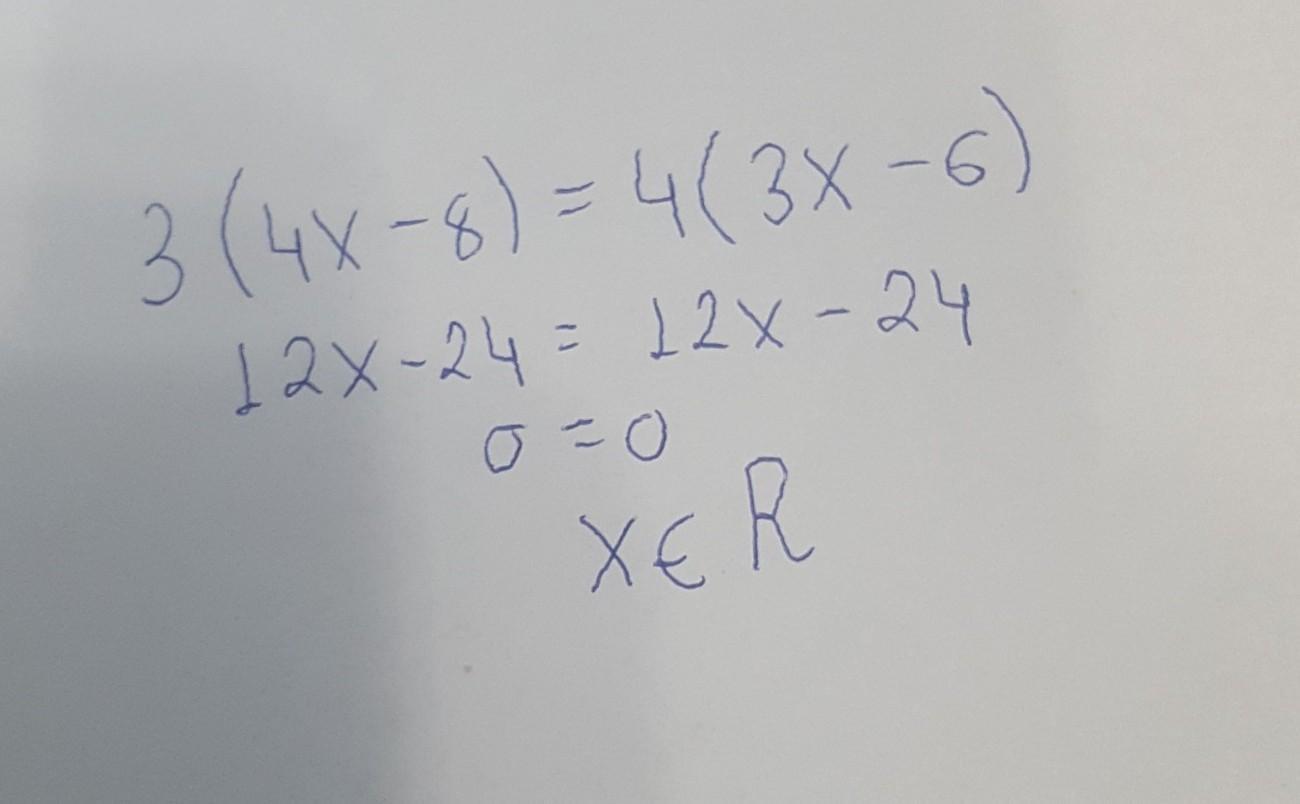 3(4x-8)=4(3x-6)
12x-24=12x-24
0=0
x∈R